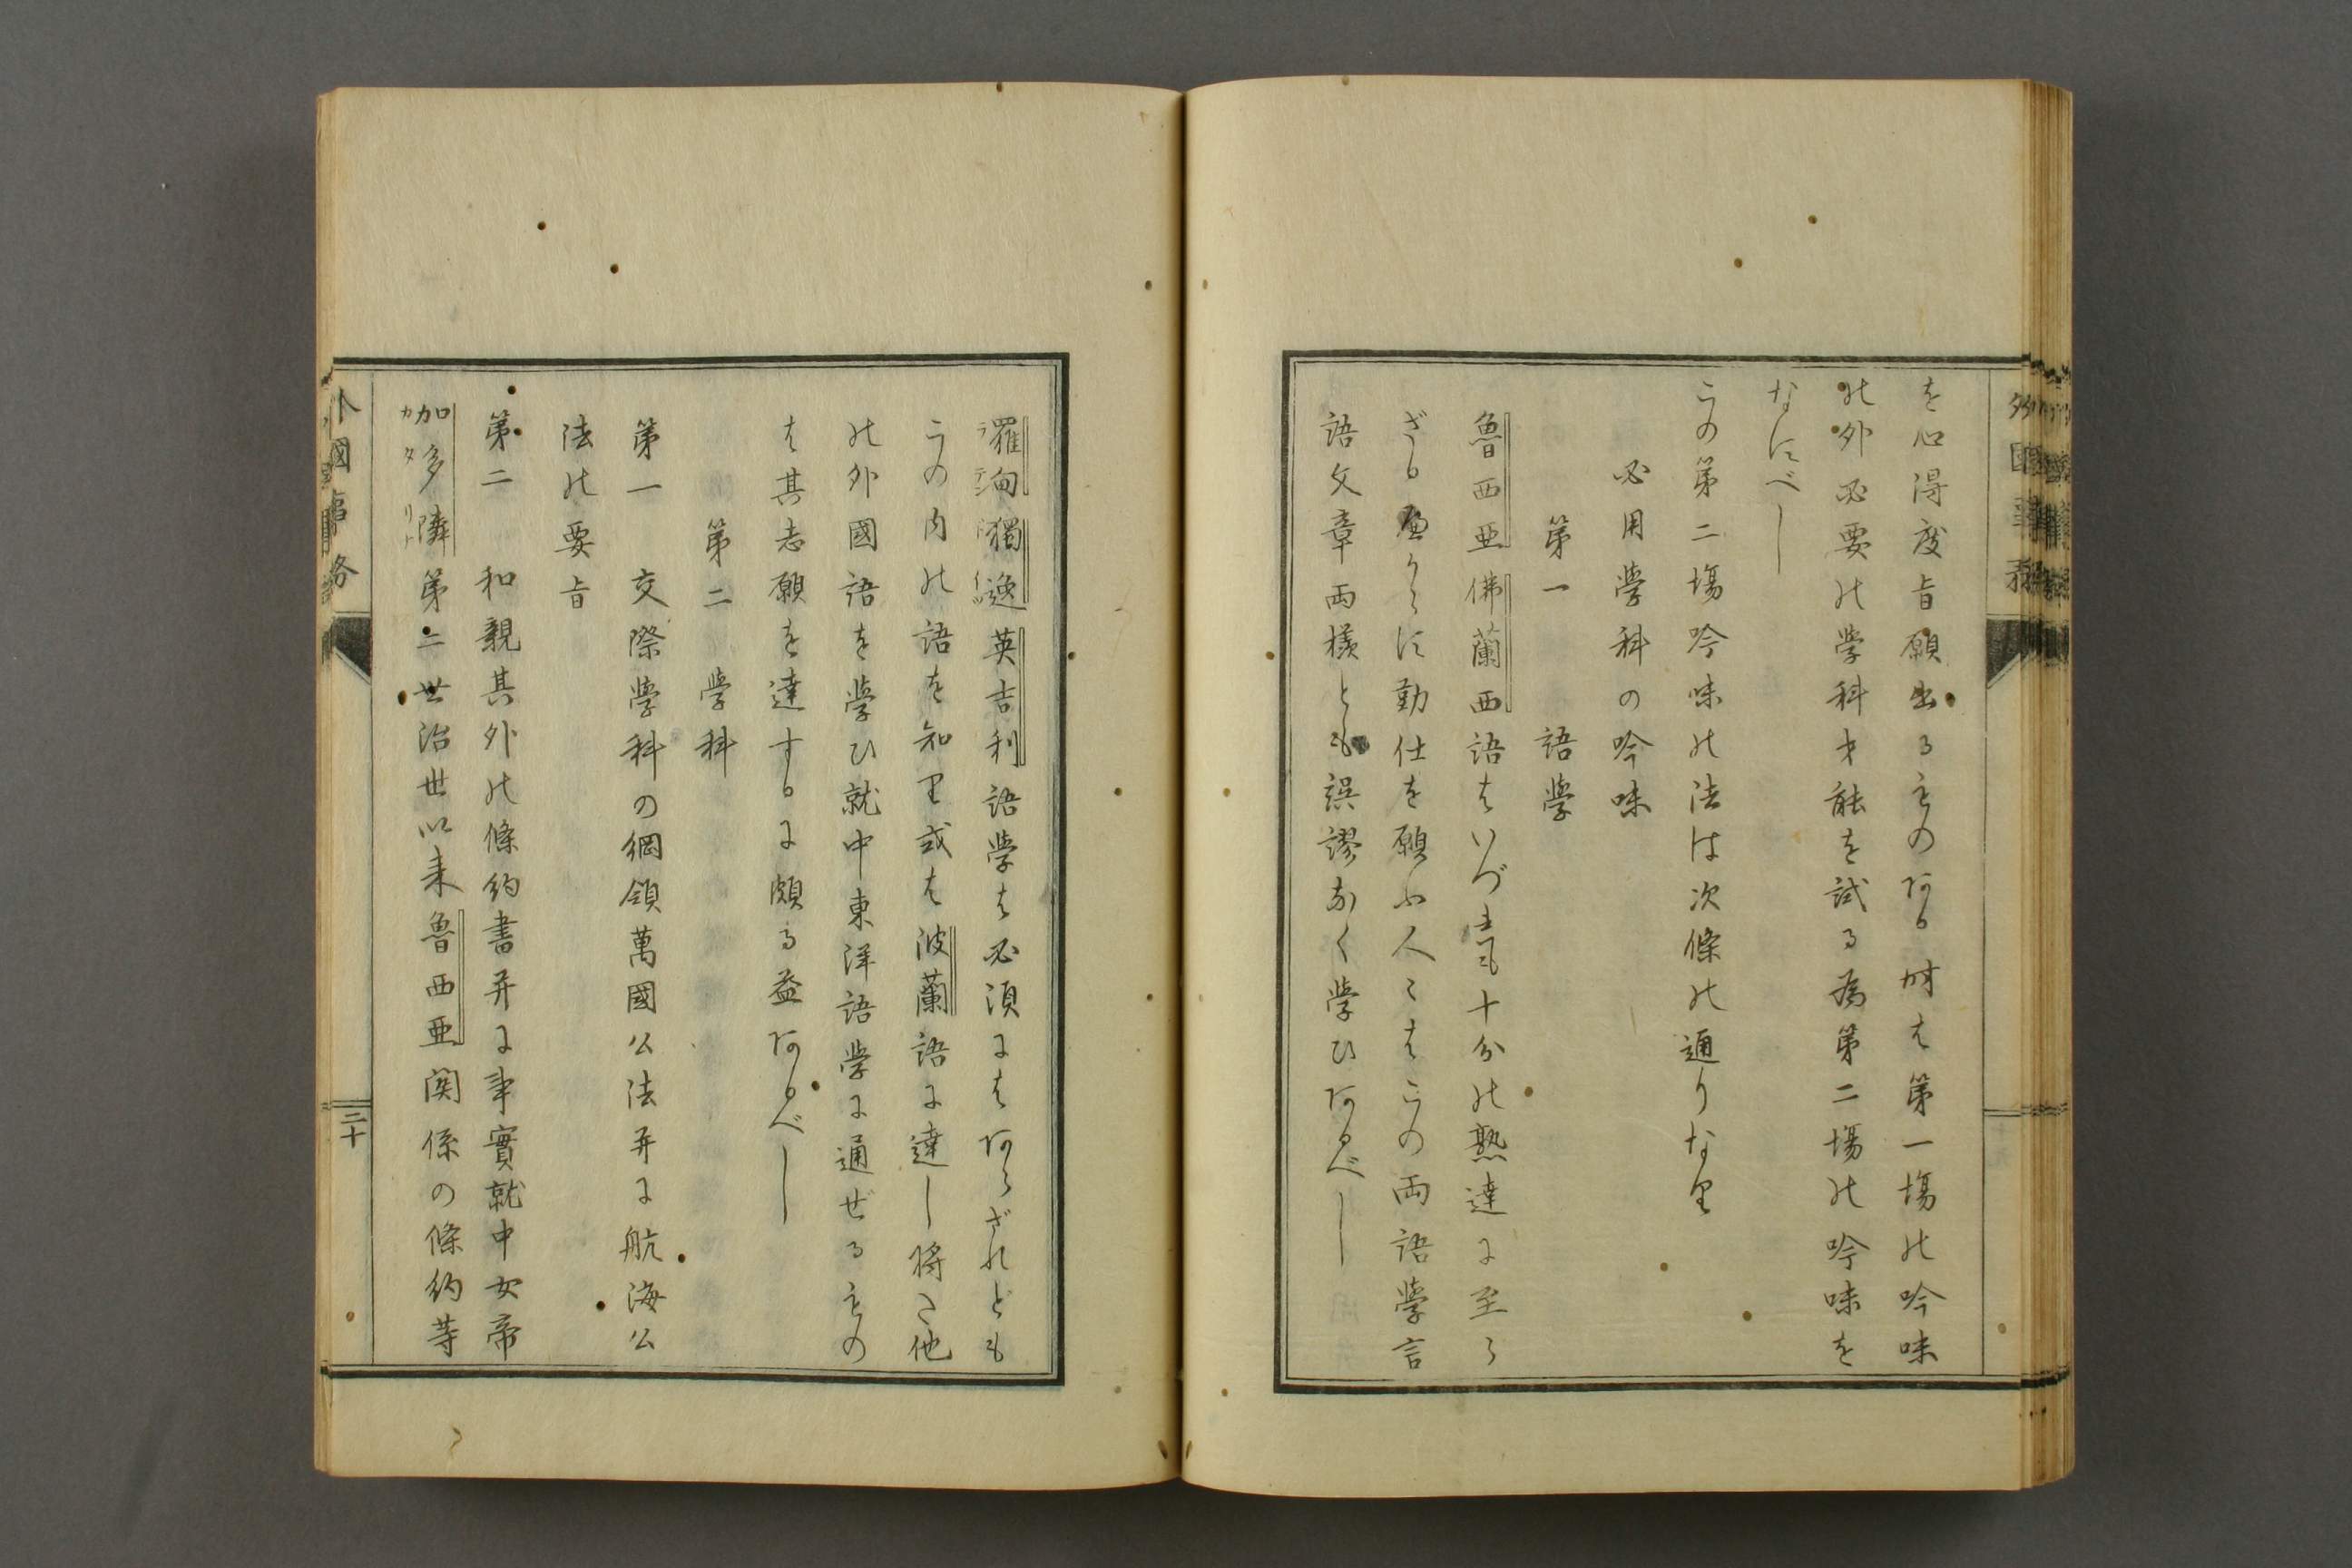 を心得度旨願出るものある時は第一場の吟味
の外必要の学科才能を試る為第二場の吟味を
なすべし
この第二場吟味の法は次條の通りなり
必用学科の吟味
第一　語学
魯西亜佛蘭西語はいづれも十分の熟達に至ら
ざる べからに勤仕を願ふ人々はこの両語学言
語文章両様とも誤謬なく学ひあるべし
羅甸獨逸英吉利語学は必須にはあらざれども
ラテン ドイツ
この内の語を知り或は波蘭語に達し将た他
の外國語を学ひ就中東洋語学に通ぜるもの
は其志願を達するに頗る益あるべし
第二　学科
第一　交際学科の綱領萬國公法并に航海公
法の要旨
第二　和親其外の條約書并に事實就中女帝
加多隣第二世治世以来魯西亜関係の條約等
カタリ
外國事務
二十